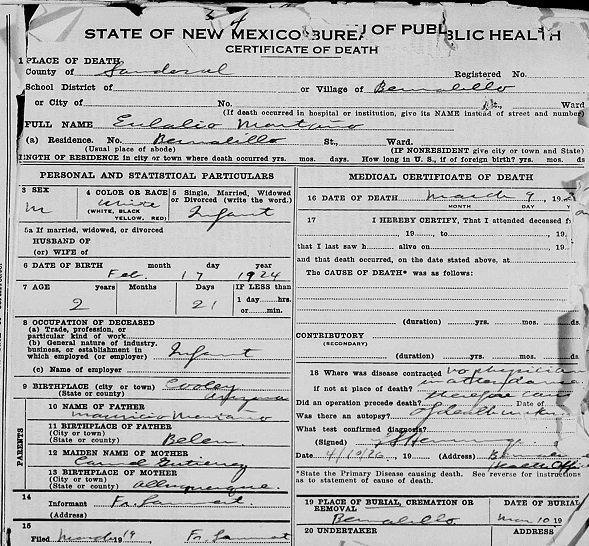 STATE OF NEW MEXICO BUREAU OF PUBLIC HEALTH
CERTIFICATE OF DEATH
1 PLACE OF DEATH
County of Sandoval Registered No.
School District of or Village of Bernalillo
or City of No. St., Ward
(If death occurred in hospital or institution, give its NAME instead of street and number)
FULL NAME Eulalio Montaño
(a) Residence. No. Bernalillo St., Ward.
(Usual place of abode) (If NONRESIDENT give city or town and State)
LENGTH OF RESIDENCE in city or town where death occurred yrs. mos. days. How long in U. S., if of foreign birth? yrs. mos. ds
PERSONAL AND STATISTICAL PARTICULARS
3 SEX
M
4 COLOR OR RACE
White
(WHITE, BLACK
YELLOW, RED)
5 Single, Married, Widowed
or Divorced (write the word.)
Infant
5a If married, widowed, or divorced
HUSBAND OF
(or) WIFE of
6 DATE OF BIRTH month day year
Feb. 17 1924
7 AGE years Months Days IF LESS than
2 21 1 day hrs.
or min.
8 OCCUPATION OF DECEASED
(a) Trade, profession, or
particular kind of work
(b) General nature of industry,
business, or establishment in
which employed (or employer) Infant
(c) Name of employer
9 BIRTHPLACE (city or town) Cooley
(State or country) Arizona
PARENTS
10 NAME OF FATHER
Mauricio Montaño
11 BIRTHPLACE OF FATHER
(City or town)
(State or county) Belen
12 MAIDEN NAME OF MOTHER
Gutierrez
13 BIRTHPLACE OF MOTHER
(City or town)
(State or county) Albuquerque.
14
Informant Fr.
(Address)
15
Filed March 19 19 Fr.
MEDICAL CERTIFICATE OF DEATH
16 DATE OF DEATH March 9, 19
MONTH DAY
17 I HEREBY CERTIFY, That I attended deceased f
, 19 , to , 19
that I last saw h alive on , 19
and that death occurred, on the date stated above, at
The CAUSE OF DEATH* was as follows:
(duration) yrs. mos. ds
CONTRIBUTORY
(SECONDARY)
(duration) yrs. mos. ds.
18 Where was disease contracted no physician
if not at place of death? in attendance
Did an operation precede death? therefore cause Date of
Was there an autopsy? of death unkn
What test confirmed diagnosis?
(Signed)
Date 4/19/26, 19 (Address)
Health Office
*State the Primary Disease causing death. See reverse for instructions
as to statement of cause of death.
19 PLACE OF BURIAL, CREMATION OR
REMOVAL
Bernalillo
DATE OF BURIAL
Mar 10 19
20 UNDERTAKER ADDRESS